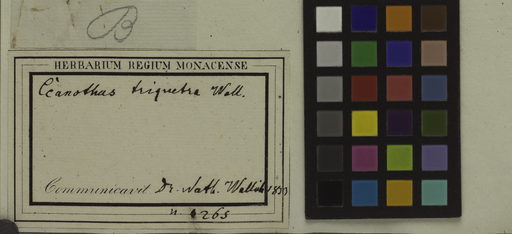 B
HERBARIUM REGIUM MONACENSE
Ceanothus triquetra Wall.
Communicavit Dr. Nath. Wallich
n. 4265